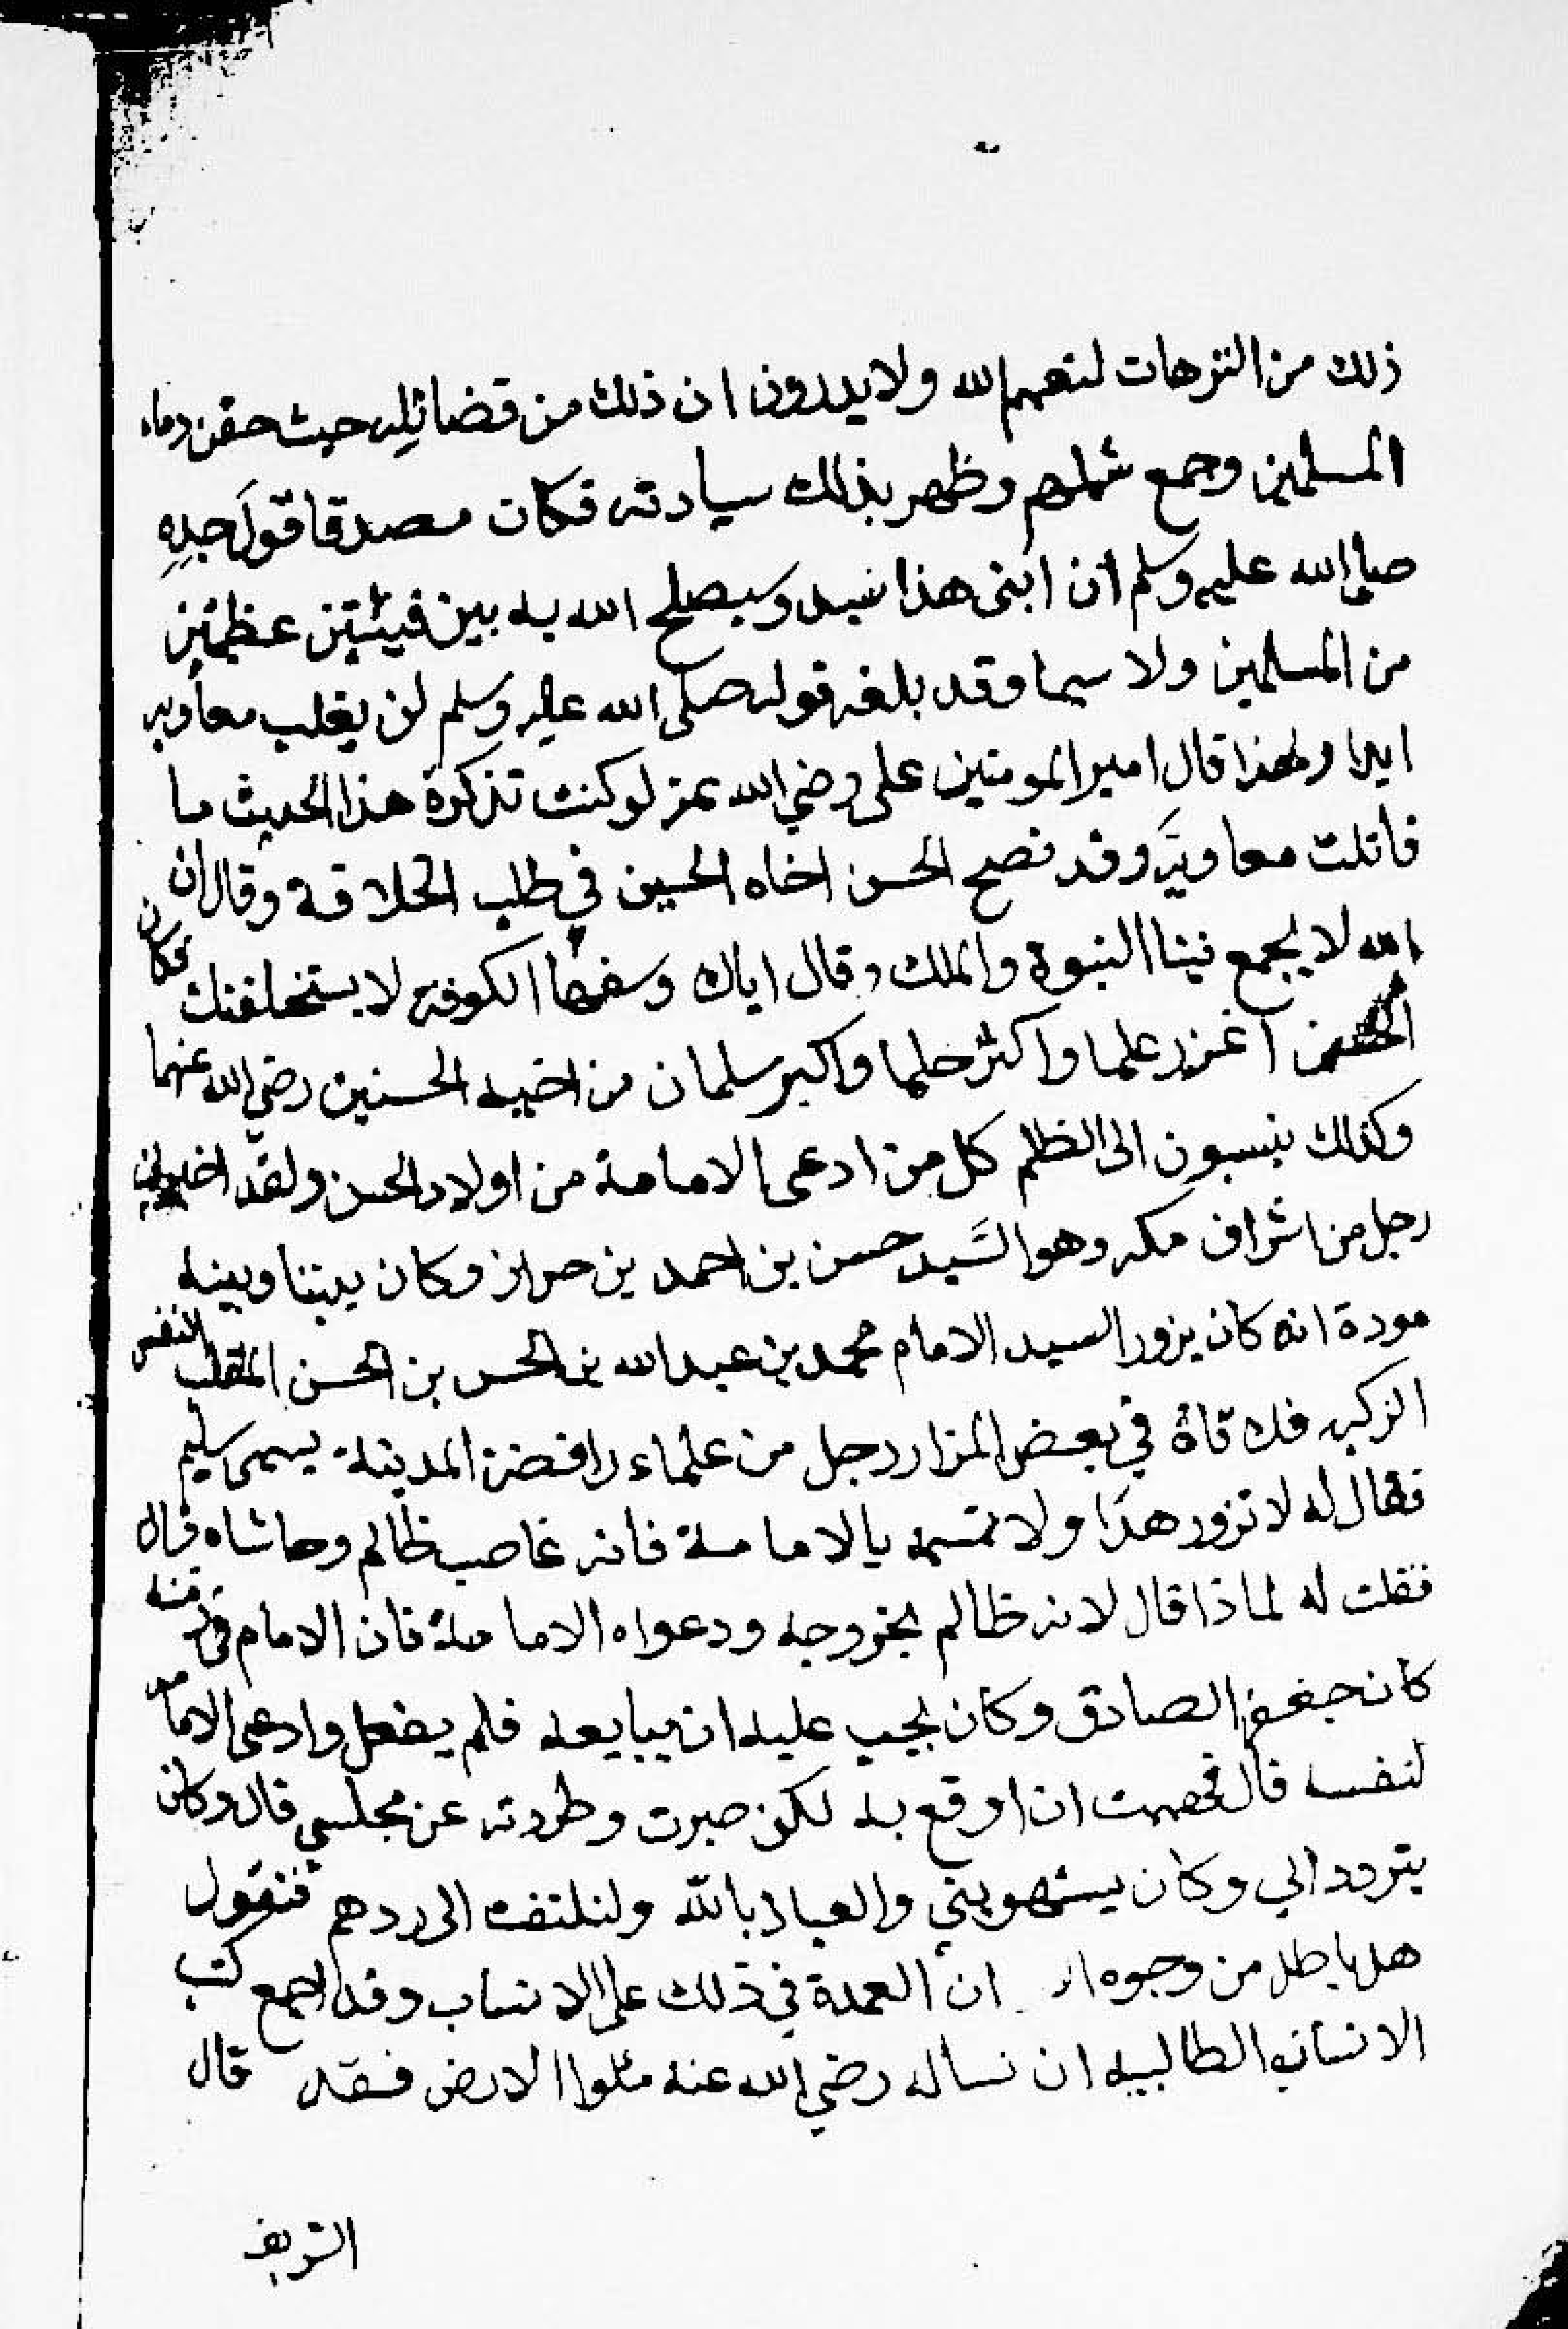 ذلك من الترهات لنعهم الله ولا يدرون ان ذلك من فضائله حيث حقن دماء
المسلمين وجمع شملهم وظهر بذلك سيادته فكان مصدقا قول جده
صلى الله عليه وسلم ان ابنى هذا سيد وسيصلح الله به بين فيئتين عظيمتين
من المسلمين ولا سيما وقد بلغه قوله صلى الله عليه وسلم لن يغلب معاويه
ابدا ولهذا قال امير المومنين على رضي الله عنه لو كنت تذكرة هذا الحديث ما
قاتلت معاوية وقد نصح الحسن اخاه الحسين في طلب الخلافة وقال ان
الله لا يجمع فينا النبوة والملك وقال اياك وسفهاا الكوفه لا يستخلفنك فكان
الحسن اغزر علما واكثر حلما واكبر سلمان من اخيه الحسنين رضي الله عنهما
وكذلك ينسبون الى الظلم كل من ادعى الامامة من اولاد الحسن ولقد اخبرني
رجل من اشراف مكه وهو السيد حسن بن احمد بن حراز وكان بيننا وبينه
مودة انه كان يزور السيد الامام محمد بن عبد الله بن الحسن بن الحسن الملقب النفس
الزكيه فلاقاة في بعض المزار رجل من علماء رافضة المدينة يسمى سليم
فقال له لا تزور هذا ولا تسمه بالامامة فانه غاصب ظالم وحاشاه قال
فقلت له لماذا قال لانه ظالم بخروجه ودعواه الامامة فان الامام في زمنه
كان جعفر الصادق وكان يجب عليه ان يبايعه فلم يفعل وادعى الامامة
لنفسه قال فهممت ان اوقع به لكن صبرت وطردته عن مجلسي قال وكان
يتردد الي وكان يستهويني والعياذ بالله ولنلتفت الى ردهم فنقول
هذا باطل من وجوه ان العمدة في ذلك على الانساب وقد اجمع كتب
الانساب الطالبيه ان نساله رضي الله عنه ملوا الارض فقد قال
الشريف